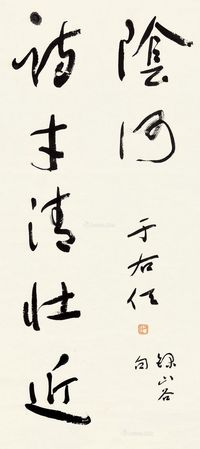 詩才清壯近
陰何
錄山谷
句
于右任